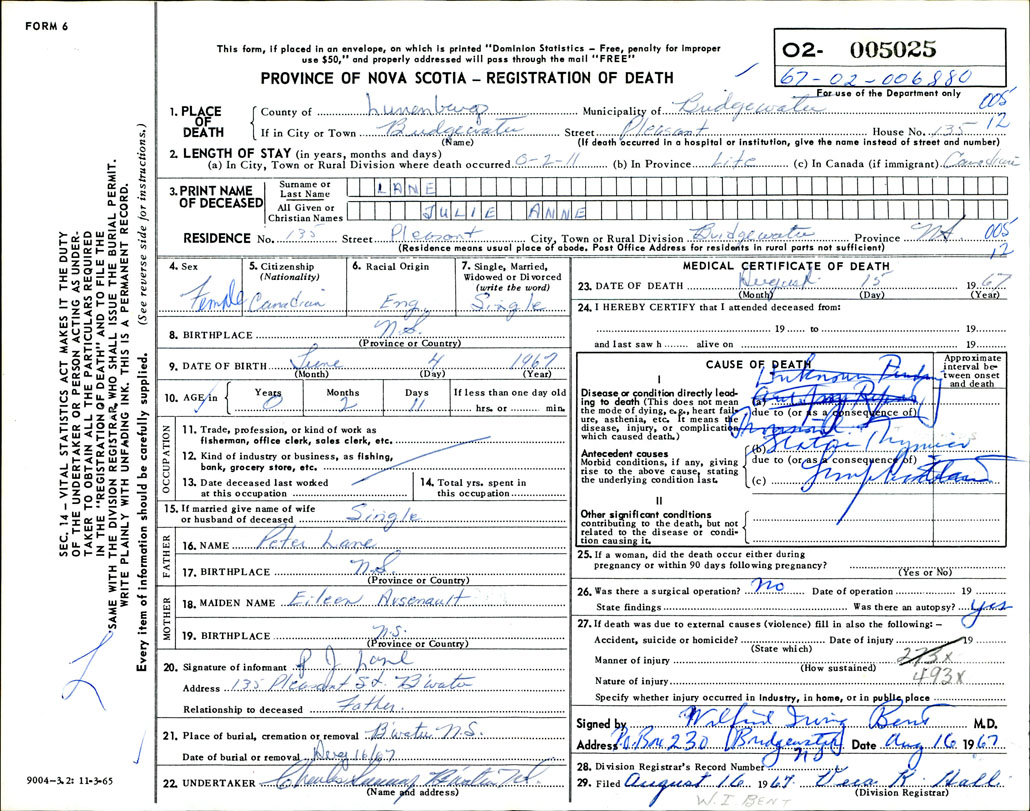 FORM 6
This form, if placed in an envelope, on which is printed "Dominion Statistics – Free, penalty for improper
use $50," and properly addressed will pass through the mail "FREE"
PROVINCE OF NOVA SCOTIA – REGISTRATION OF DEATH
02- 005025
67-02-006880
For use of the Department only
005
12
1. PLACE OF DEATH
County of Lunenburg Municipality of Bridgewater
If in City or Town Bridgewater Street Pleasant House No. 135
(Name) (If death occurred in a hospital or institution, give the name instead of street and number)
2. LENGTH OF STAY (in years, months and days)
(a) In City, Town or Rural Division where death occurred 0-2-11 (b) In Province Life (c) In Canada (if immigrant) Canadian
3. PRINT NAME OF DECEASED
Surname or Last Name LANE
All Given or Christian Names JULIE ANNE
RESIDENCE No. 135 Street Pleasant City, Town or Rural Division Bridgewater Province N.S.
005
12
(Residence means usual place of abode. Post Office Address for residents in rural parts not sufficient)
4. Sex
Female
5. Citizenship
(Nationality)
Canadian
6. Racial Origin
Eng.
7. Single, Married,
Widowed or Divorced
(write the word)
Single
8. BIRTHPLACE N.S.
(Province or Country)
9. DATE OF BIRTH June 4 1967
(Month) (Day) (Year)
10. AGE in
Years Months Days If less than one day old
0 2 11 hrs. or min.
OCCUPATION
11. Trade, profession, or kind of work as
fisherman, office clerk, sales clerk, etc.
12. Kind of industry or business, as fishing,
bank, grocery store, etc.
13. Date deceased last worked
at this occupation
14. Total yrs. spent in
this occupation
15. If married give name of wife
or husband of deceased Single
FATHER
16. NAME Peter Lane
17. BIRTHPLACE N.S.
(Province or Country)
MOTHER
18. MAIDEN NAME Eileen Arsenault
19. BIRTHPLACE N.S.
(Province or Country)
20. Signature of informant P J Lane
Address 135 Pleasant St. B'water
Relationship to deceased Father
21. Place of burial, cremation or removal B'water N.S.
Date of burial or removal 16/67
22. UNDERTAKER Charles
(Name and address)
MEDICAL CERTIFICATE OF DEATH
23. DATE OF DEATH August 15 1967
(Month) (Day) (Year)
24. I HEREBY CERTIFY that I attended deceased from:
19 to 19
and last saw h alive on 19
CAUSE OF DEATH
Approximate
interval be-
tween onset
and death
I
Disease or condition directly lead-
ing to death (This does not mean
the mode of dying, e.g., heart fail-
ure, asthenia, etc. It means the
disease, injury, or complication
which caused death.)
Unknown
(a)
due to (or as a consequence of)
Antecedent causes
Morbid conditions, if any, giving
rise to the above cause, stating
the underlying condition last.
(b) Status Thymico
due to (or as a consequence of)
(c) Lymphaticus
II
Other significant conditions
contributing to the death, but not
related to the disease or condi-
tion causing it.
25. If a woman, did the death occur either during
pregnancy or within 90 days following pregnancy?
(Yes or No)
26. Was there a surgical operation? No Date of operation 19
State findings Was there an autopsy? Yes
27. If death was due to external causes (violence) fill in also the following: –
Accident, suicide or homicide? Date of injury 19
(State which)
Manner of injury 273x
(How sustained)
Nature of injury 493x
Specify whether injury occurred in industry, in home, or in public place
Signed by Wilfrid Irving Bent M.D.
Address P.O. Box 230 Bridgewater NS Date Aug 16 1967
28. Division Registrar's Record Number
29. Filed August 16 1967 Vera R. Hall
(Division Registrar)
W. I BENT
SEC. 14 – VITAL STATISTICS ACT MAKES IT THE DUTY
OF THE UNDERTAKER OR PERSON ACTING AS UNDER-
TAKER TO OBTAIN ALL THE PARTICULARS REQUIRED
IN THE "REGISTRATION OF DEATH" AND TO FILE THE
SAME WITH THE DIVISION REGISTRAR, WHO SHALL ISSUE THE BURIAL PERMIT.
WRITE PLAINLY WITH UNFADING INK. THIS IS A PERMANENT RECORD.
Every item of information should be carefully supplied. (See reverse side for instructions.)
9004-3.2: 11-3-65